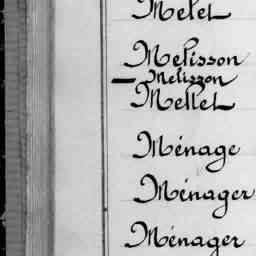 Melet
Melisson
— Melisson
Mellet
Ménage
Ménager
Ménager